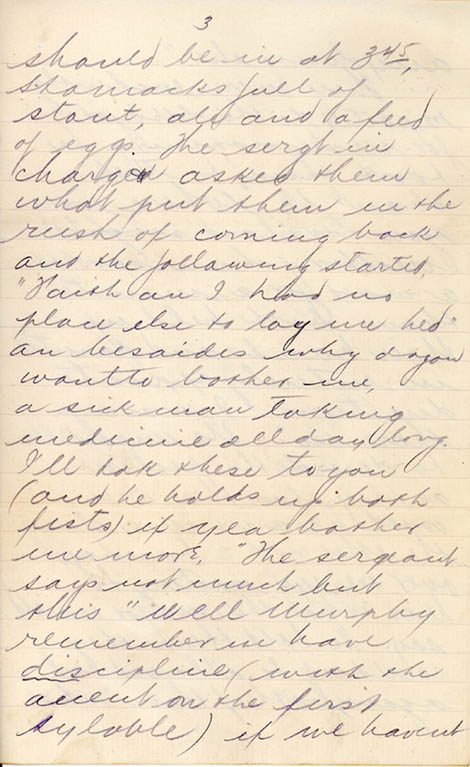 3
should be in at 3 45,
stomacks full of
stout, ale and a feed
of eggs. The sergt in
charge asked them
what put them in the
rush of coming back
and the following started,
"Faith an I had no
place else to lay me hed"
an besaides why do you
want to bother me,
a sick man taking
medicine all day long.
I'll tak these to you
(and he holds up both
fists) if yea bother
me more. "The sergeant
says not much but
this "Well Murphy
remember we have
discipline (with the
accent on the first
sylable) if we havent